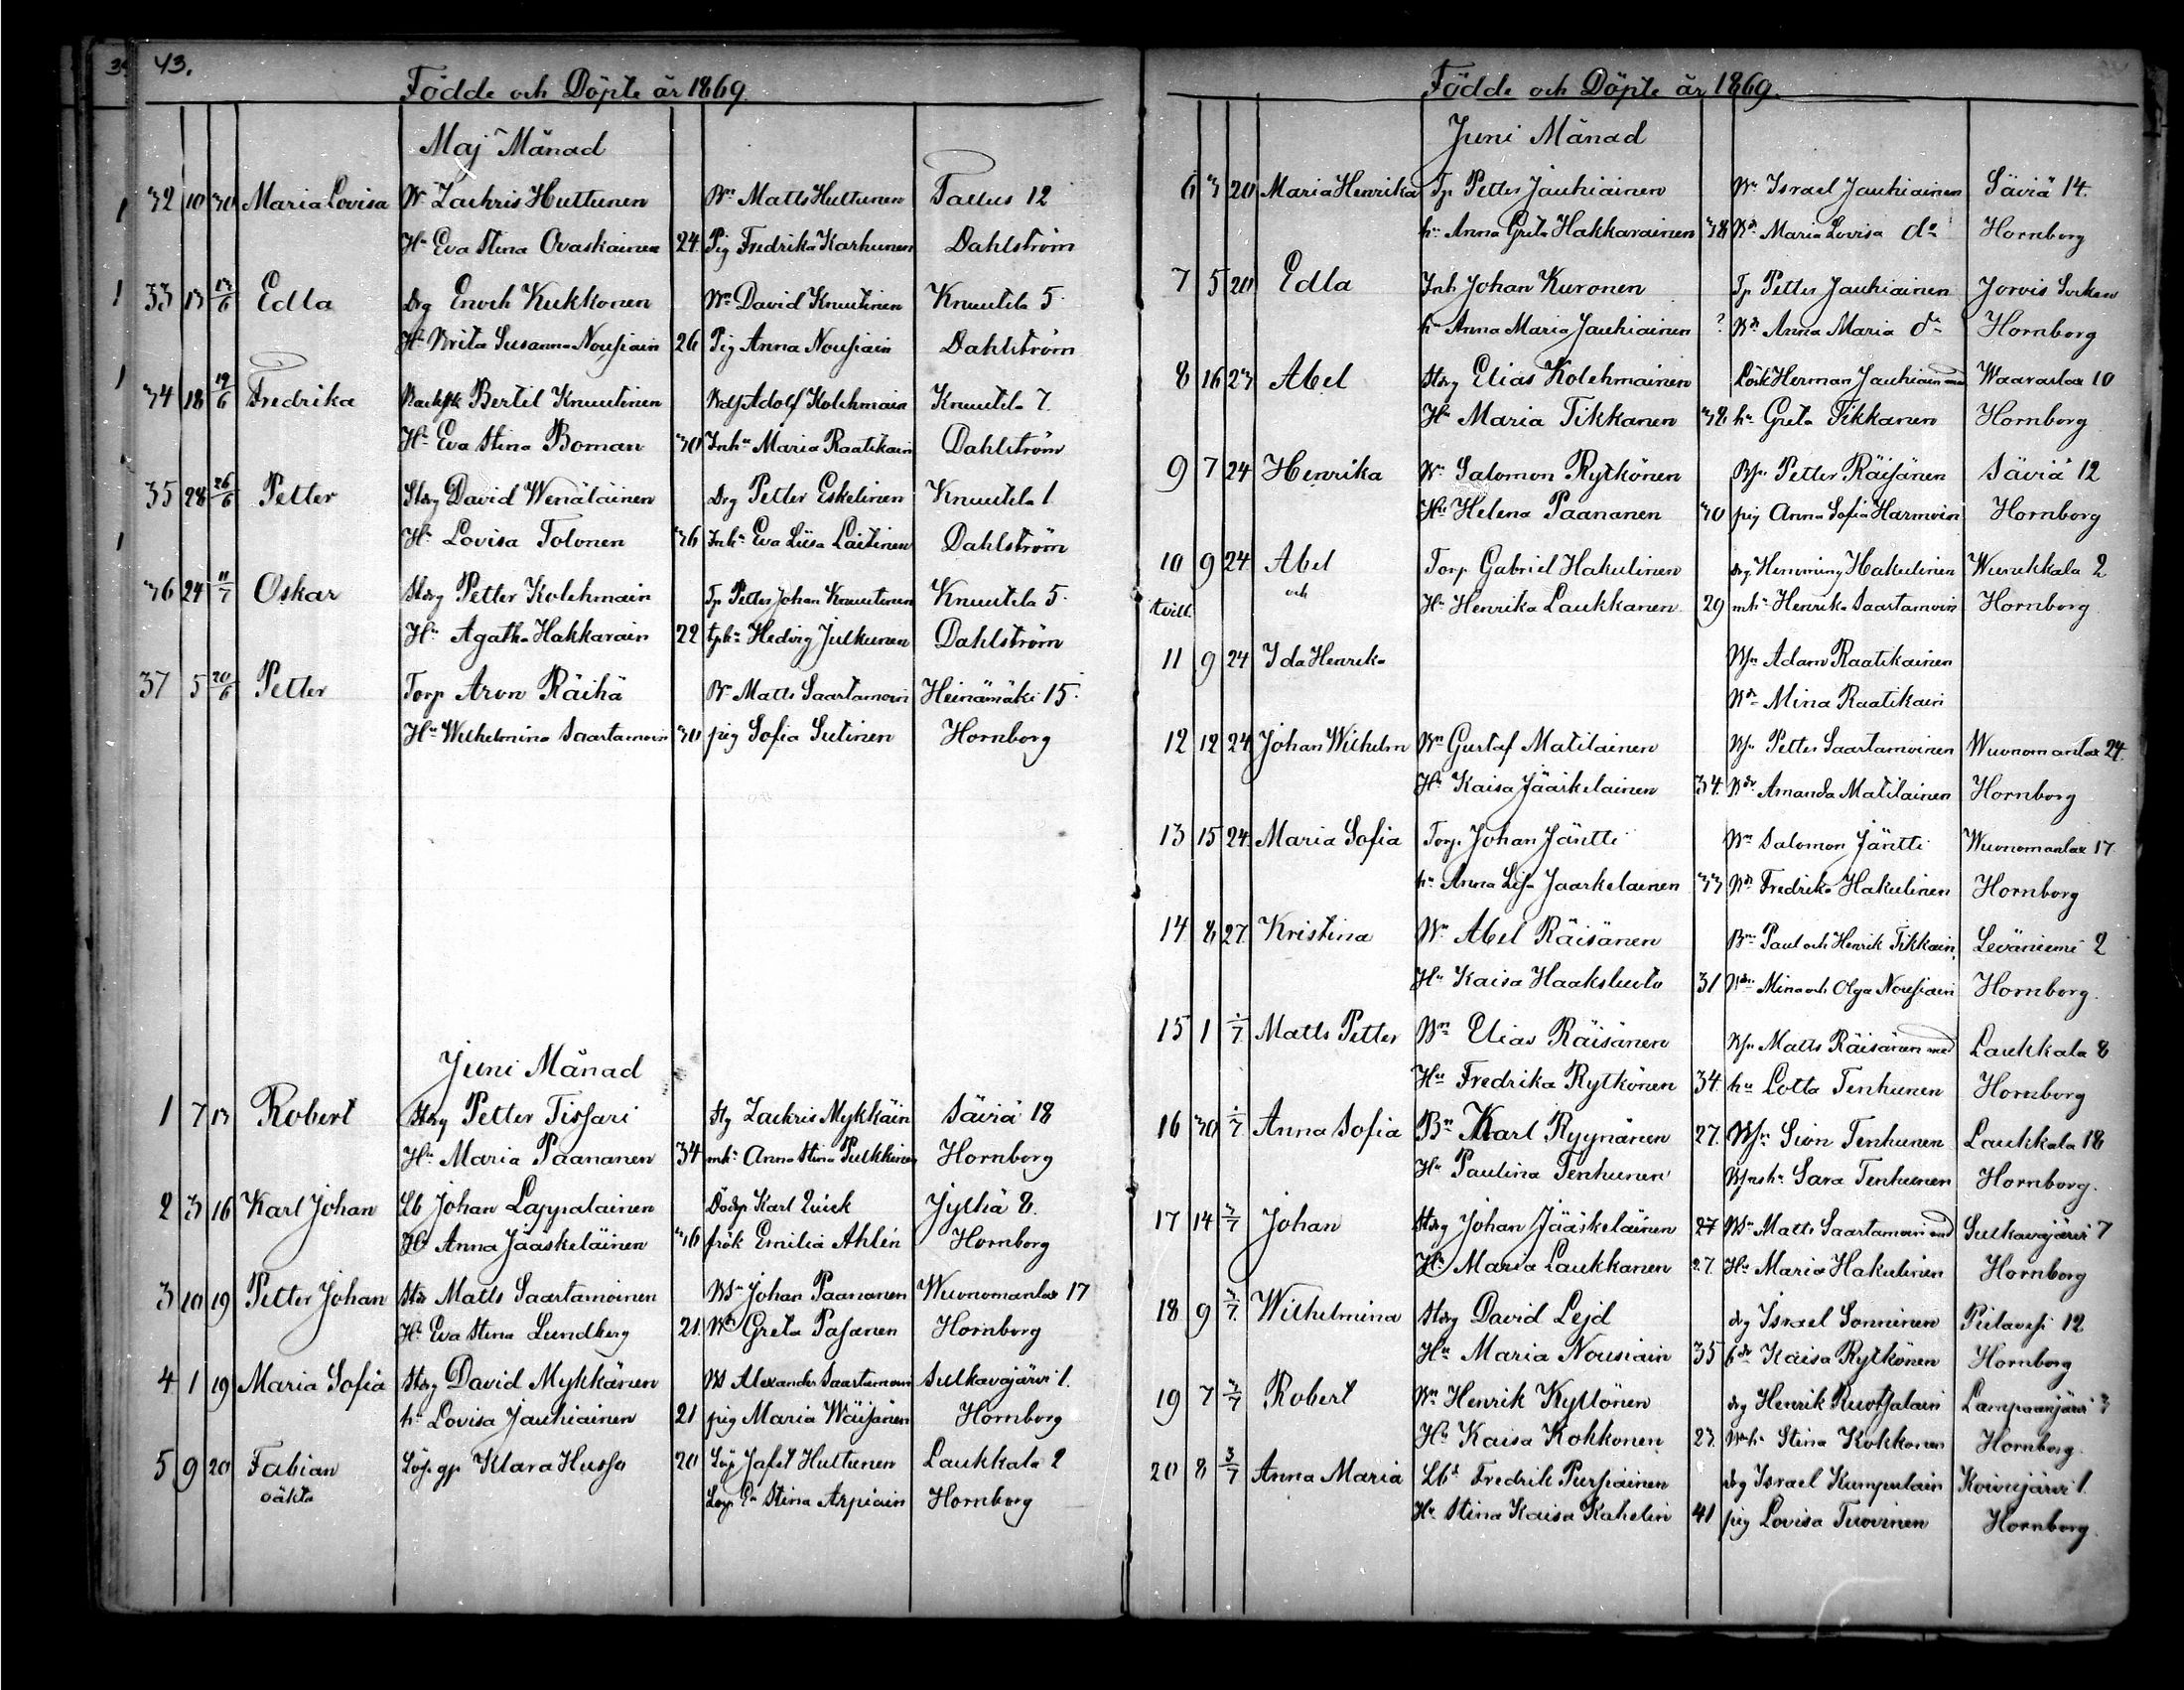 43.
Födde och Döpte år 1869.
Maj Månad
32 10 30 Maria Lovisa Bn Zachris Huttunen Bn Matts Huttunen Tallus 12
Hu Eva Stina Ovaskainen 24. Pig Fredrika Karhunen Dahlström
33 13 13/6 Edla Drg Enoch Kukkonen Bn David Knuutinen Knuutila 5.
Hu Brita Susanna Nousiain 26 Pig Anna Nousiain Dahlström
34 18 19/6 Fredrika Bertil Knuutinen Adolf Kolehmain Knuutila 7.
Hu Eva Stina Boman 30 Inhn Maria Raatikain Dahlström
35 28 26/6 Petter Stdrg David Wenäläinen Drg Petter Eskelinen Knuutila 1
Hu Lovisa Tolonen 36 Inhn Eva Liisa Laitinen Dahlström
36 24 11/7 Oskar Stdrg Petter Kolehmain Tp Petter Johan Knuutinen Knuutila 5.
Hu Agatha Hakkarain 22 tphu Hedvig Julkunen Dahlström
37 5 20/6 Petter Torp Aron Räihä Bn Matts Saartamoin Heinämäki 15.
Hu Wilhelmina Saartamoin 30 pig Sofia Sutinen Hornborg
Juni Månad
1 7 13 Robert Stdrg Petter Tissari Stg Zachris Mykkäin Säviä 18
Hu Maria Paananen 34 mhu Anna Stina Pulkkinen Hornborg
2 3 16 Karl Johan Lb Johan Lappalainen Karl Quick Jylhä 8.
Hu Anna Jääskeläinen 36 frök Emilia Ahlin Hornborg
3 10 19 Petter Johan Matts Saartamoinen Johan Paananen Wuonamanlax 17
Hu Eva Stina Lundberg 21. Bdr Greta Pasanen Hornborg
4 1 19 Maria Sofia Stdrg David Mykkänen Bs Alexander Saartamoin Sulkavajärvi 1.
hu Lovisa Jauhiainen 21 pig Maria Wäisänen Hornborg
5 9 20 Fabian Lösp gp Klara Husso 20 Lög Jafet Huttunen Laukkala 2
oäkta Stina Arpiain Hornborg
Födde och Döpte år 1869.
Juni Månad
6 3 20 Maria Henrika Tp Petter Jauhiainen Bn Israel Jauhiainen Säviä 14.
hu Anna Greta Hakkarainen 38 Bdr Maria Lovisa do Hornborg
7 5 20 Edla Inh Johan Kuronen Tp Petter Jauhiainen Jorois Socken
hu Anna Maria Jauhiainen ? Bdr Anna Maria do Hornborg
8 16 23 Abel Stdrg Elias Kolehmainen Herman Jauhiain med Waaraslax 10
Hu Maria Tikkanen 38 hu Greta Tikkanen Hornborg
9 7 24 Henrika Bn Salomon Rytkönen Bsn Petter Räisänen Säviä 12
Hu Helena Paananen 30 pig Anna Sofia Harmoin Hornborg
10 9 24 Abel Torp Gabriel Hakulinen drg Hemming Hakulinen Wunukkala 2
tvill och Hu Henrika Laukkanen 29 mhu Henrika Saartamoin Hornborg
11 9 24 Ida Henrika Bsn Adam Raatikainen
Bdr Mina Raatikain
12 12 24 Johan Wilhelm Bn Gustaf Matilainen Bsn Petter Saartamoinen Wuonamanlax 24.
Hu Kaisa Jääskelainen 34. Bdr Amanda Matilainen Hornborg
13 15 24. Maria Sofia Torp. Johan Jäntti Bn Salomon Jäntti Wuonamanlax 17.
hu Anna Lisa Jaaskelainen 33 Bdr Fredrika Hakulinen Hornborg
14 8 27. Kristina Bn Abel Räisänen Bn Paul och Henrik Tikkain. Leväniemi 2
Hu Kaisa Haaksluoto 31 Mina och Olga Nousiain Hornborg.
15 1 1/7 Matts Petter Bn Elias Räisänen Bsn Matts Räisänen med Laukkala 8
Hu Fredrika Rytkönen 34. hu Lotta Tenhunen Hornborg
16 30 1/7 Anna Sofia Bn Karl Ryynänen 27. Bsn Sion Tenhunen Laukkala 18
Hu Paulina Tenhunen Bsnshu Sara Tenhunen Hornborg.
17 14 3/7 Johan Stdrg Johan Jääskeläinen 27 Bn Matts Saartamoin med Sulkavajärvi 7
Hu Maria Laukkanen 27. Hu Maria Hakulinen Hornborg
18 9 3/7 Wilhelmina Stdrg David Lejd drg Israel Sonninen Pielavesi 12
Hu Maria Nousiain 35 bdr Kaisa Rytkönen Hornborg
19 7 3/7 Robert Bn Henrik Kyllönen drg Henrik Ruotsalain Lampaanjärvi 3
Hu Kaisa Kokkonen 23. Stina Kokkonen Hornborg.
20 8 3/7 Anna Maria Lbd Fredrik Pursiainen drg Israel Kumpulain Koivujärvi 1.
Hu Stina Kaisa Kahelin 41 pig Lovisa Tuovinen Hornborg.